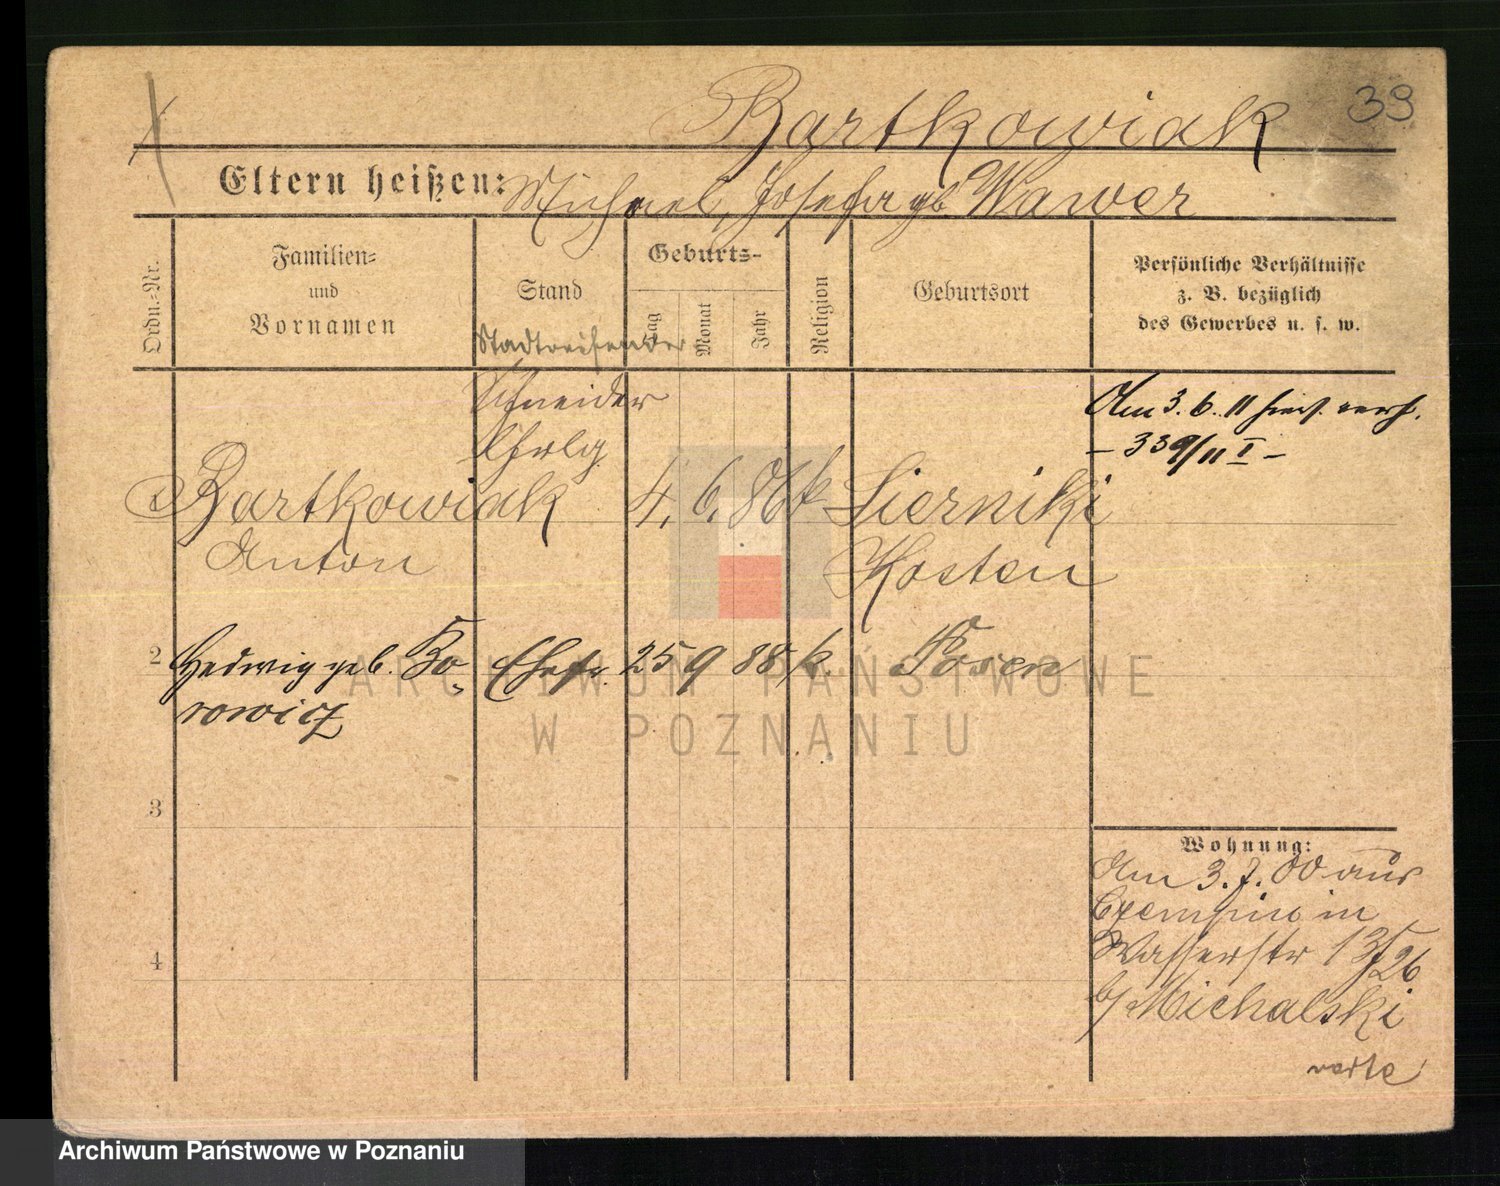 39
Bartkowiak
Eltern heißen: Michael, Josefa gb Wawer
Ordn.=Nr.
Familien=
und
Vornamen
Stand
Geburts-
Tag
Monat
Jahr
Religion
Geburtsort
Persönliche Verhältnisse
z. B. bezüglich
des Gewerbes u. s. w.
Stadtreisender
Schneider
Lhrlg
Bartkowiak 4. 6. 86 k Sierniki
Anton Kosten
Am 3. 6. 11 hier verh.
- 339/11 I -
2 Hedwig geb. Bo- Ehefr. 25 9 88 k. Posen
rowicz
3
4
Wohnung:
Am 3. 7. 00 aus
in
Wasserstr 13/26
b/ Michalski
ARCHIWUM PAŃSTWOWE
W POZNANIU
Archiwum Państwowe w Poznaniu